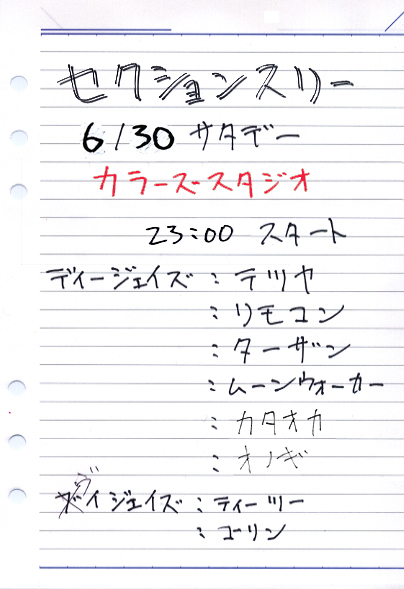 セクションスリー
6/30 サタデー
カラーズスタジオ
23:00 スタート
ディージェイズ:テツヤ
:リモコン
:ターザン
:ムーンウォーカー
:カタオカ
:オノギ
ヴイジェイズ:ティーツー
:コーリン